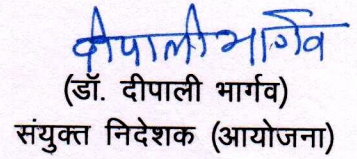 दीपाली भार्गव
(डॉ. दीपाली भार्गव)
संयुक्त निदेशक (आयोजना)